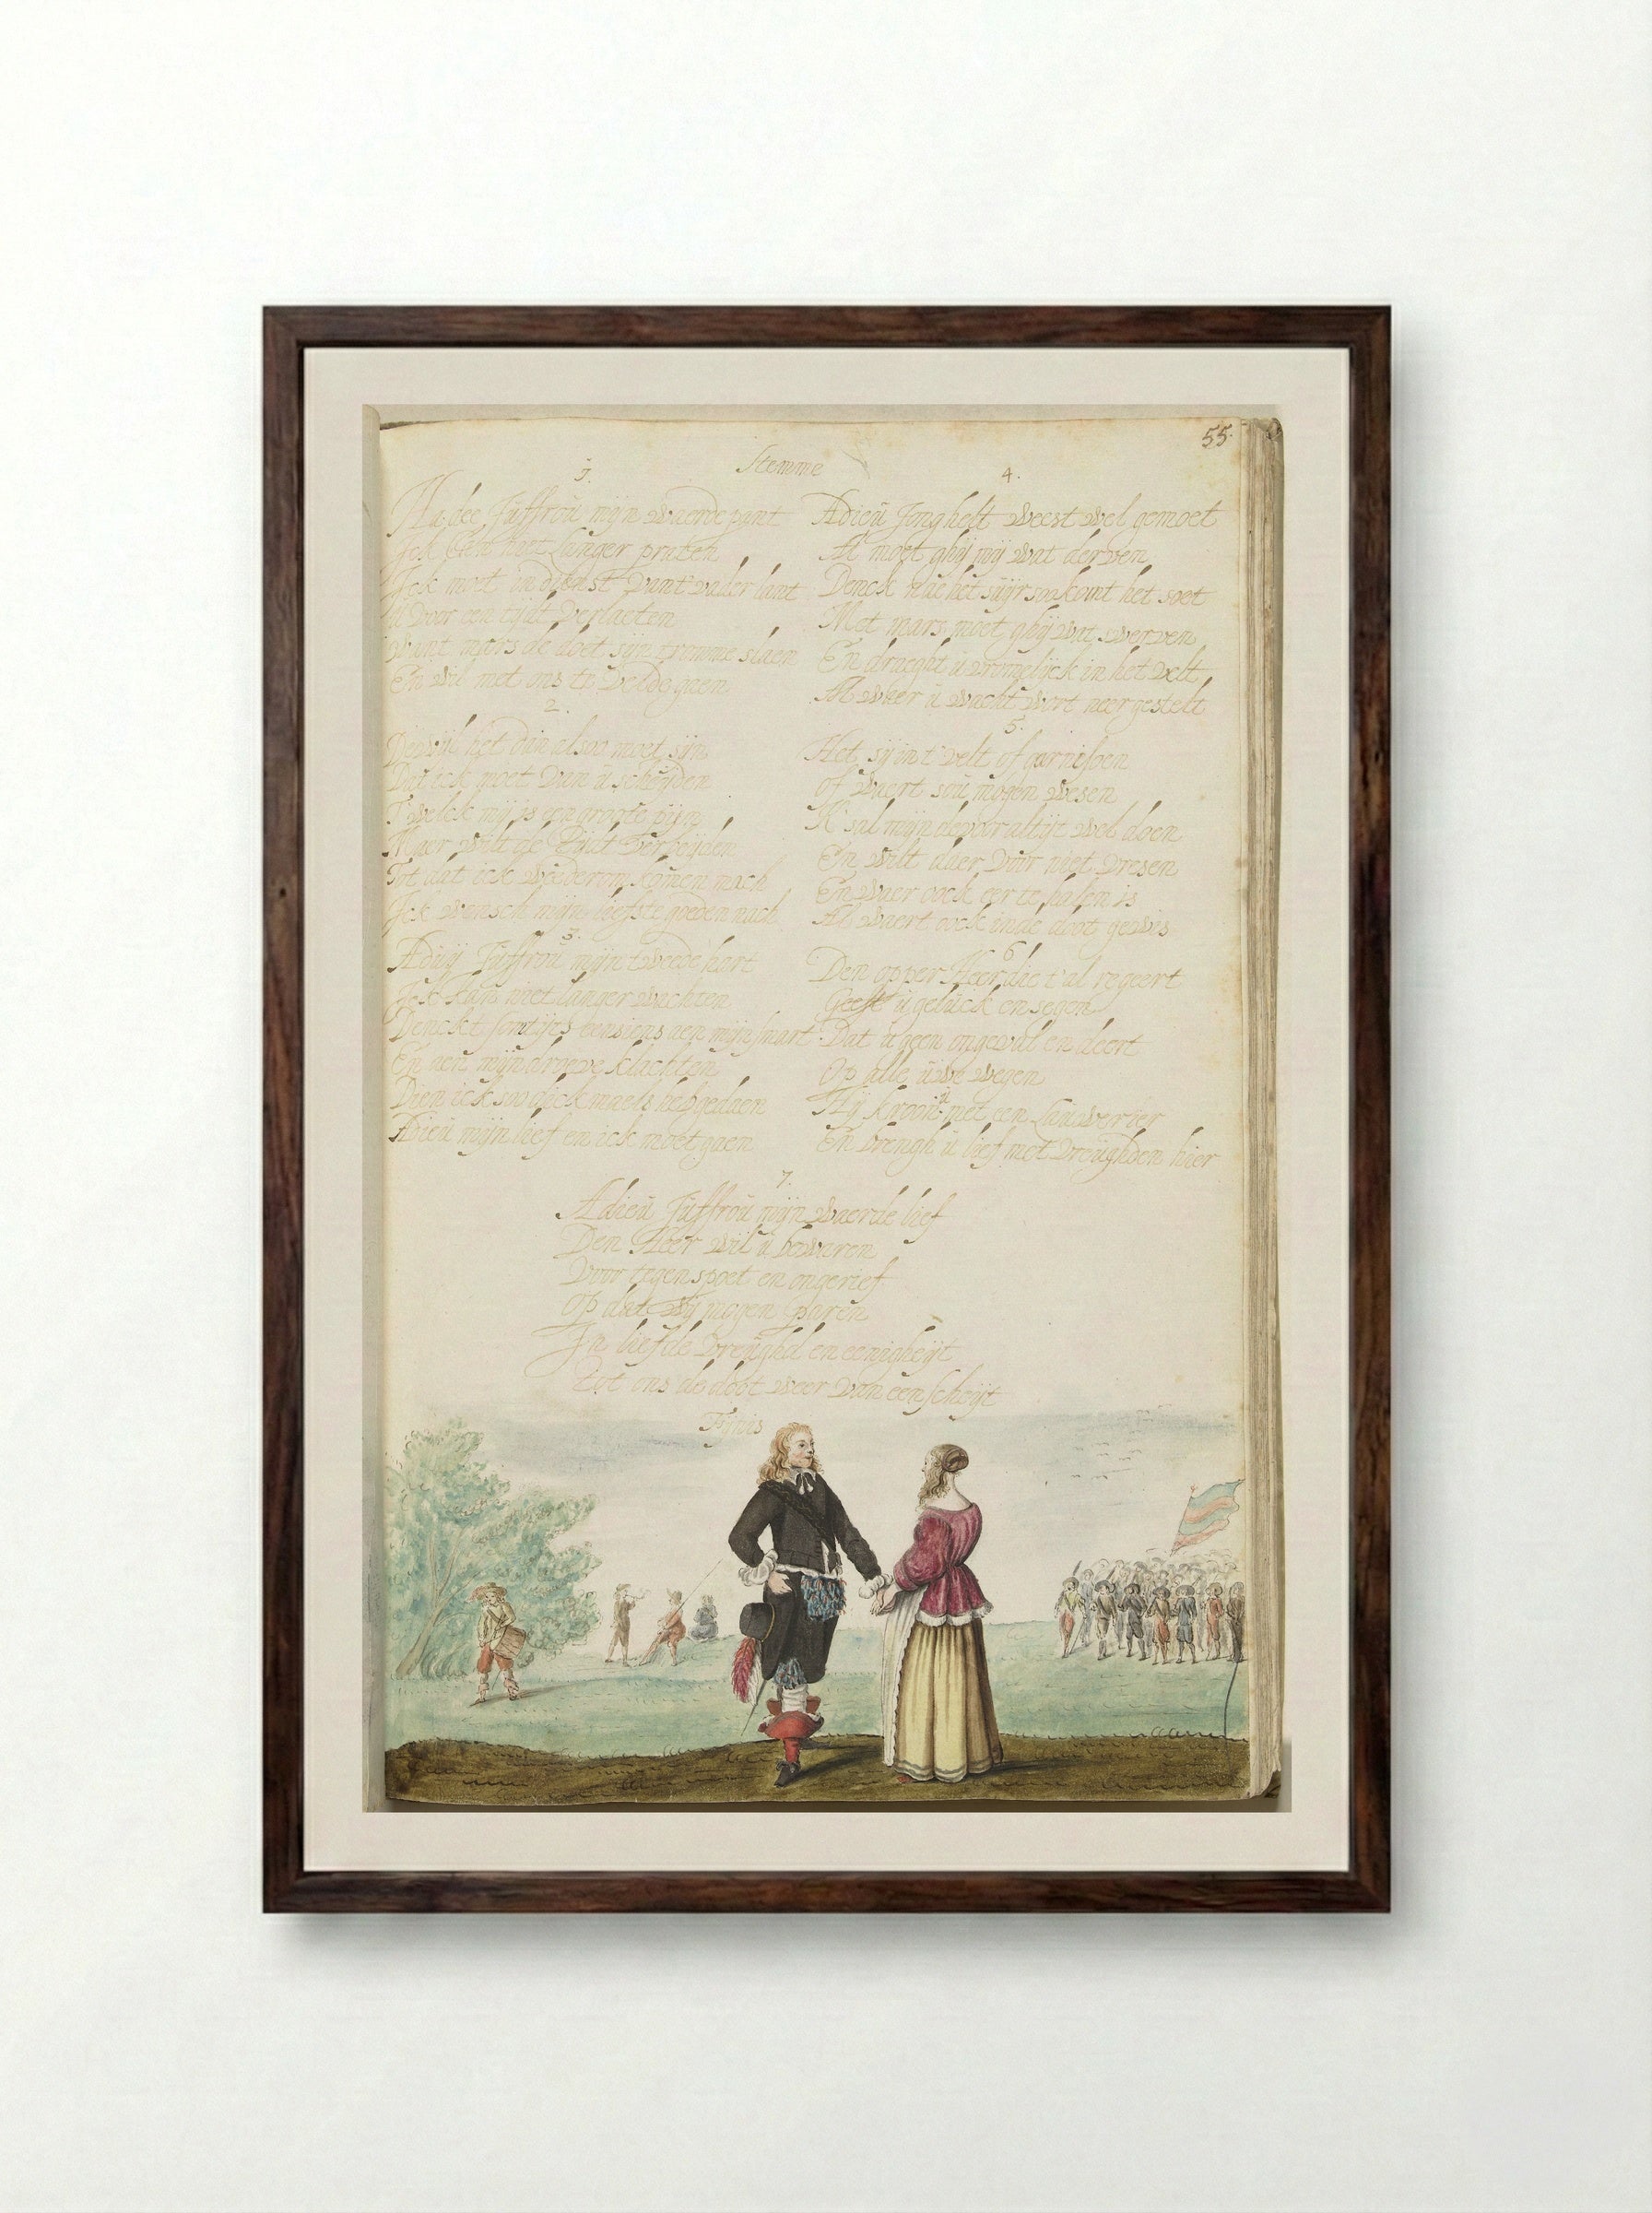 55.
Stemme
1.
Juffrou mijn waerde pant
Ick langer praten
Ick moet in dienst vant vader lant
u voor een tijdt verlaeten
want mars de doet sijn tromme slaen
En wil met ons te velde gaen
2.
Dewijl het dan alsoo moet sijn
Dat ick moet van u scheijden
T'welck mijn is een groote pijn
Maer wilt de tijdt verbeijden
Tot dat ick wederom komen mach
Ick wensch mijn liefste goeden nach
3.
Juffrou mijn tweede hart
Ick kan niet langer wachten
Denckt somtijts eensiens aen mijn smart
En aen mijn droeve klachten
Dien ick soo dickmaels heb gedaen
Adieu mijn lief en ick moet gaen
4.
Adieu Jonghelt weest wel gemoet
Al moet ghij mij wat derven
Denck nae het suijr soo komt het soet
Met mars moet ghij wat swerven
En draeght u vromelijck in het velt
Al waer u wacht wort neer gestelt
5.
Het sij int velt of garnisoen
of waert sou mogen wesen
K'sal mijn devoor altijt wel doen
En wilt daer voor niet vresen
En waer oock eer te halen is
Al waert oock inde doot gewis
6
Den opper Heer die t'al regeert
Geeft u geluck en segen
Dat u geen ongeval en deert
Op alle uwe wegen
Hij kroon u met een Lauwerier
En brengh u lief met vreughden hier
7.
Adieu Juffrou mijn waerde lief
Den Heer wil u bewaren
Voor tegenspoet en ongerief
Op dat wij mogen paren
In liefde vreughd en eenigheijt
Tot ons de doot weer van een scheijt
Fijnis